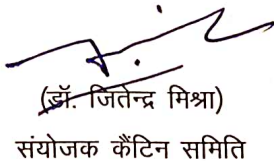 (डॉ. जितेन्द्र मिश्रा)
संयोजक कैंटिन समिति